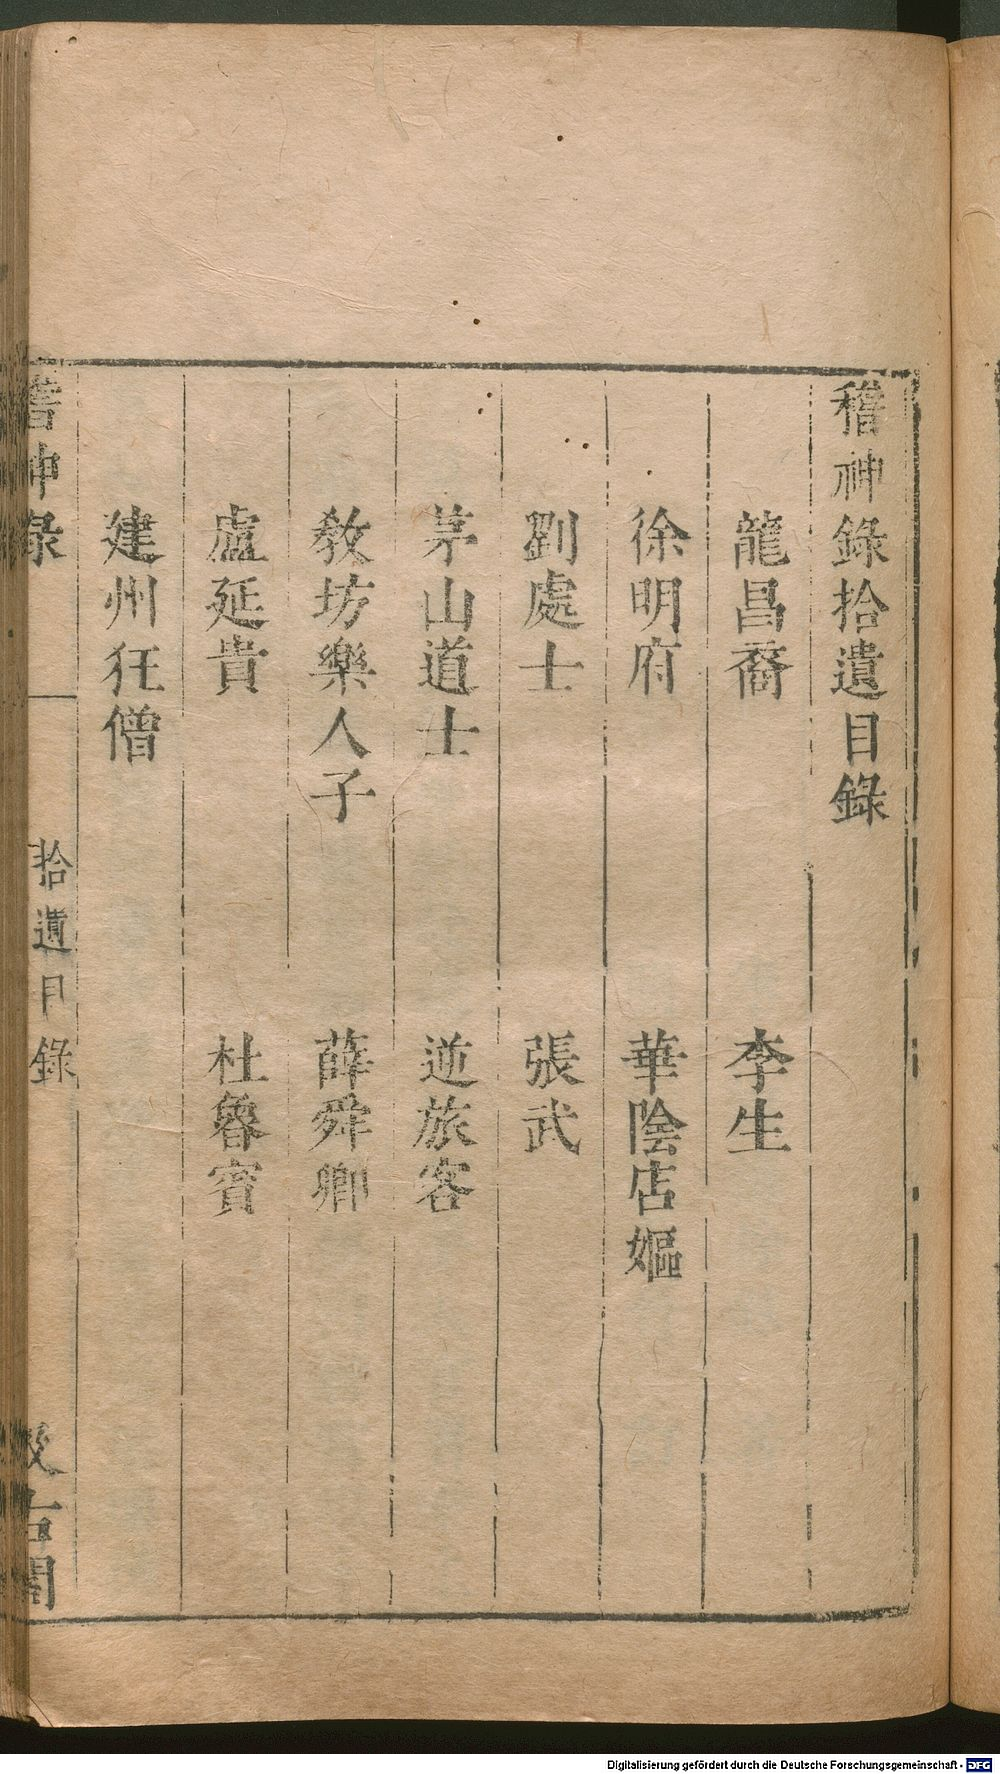 稽神錄拾遺目錄
龍昌裔 李生
徐明府 華陰店嫗
劉處士 張武
茅山道士 逆旅客
教坊樂人子 薛舜卿
盧延貴 杜魯賓
建州狂僧
稽神錄 拾遺目錄 汲古閣
Digitalisierung gefördert durch die Deutsche Forschungsgemeinschaft - DFG